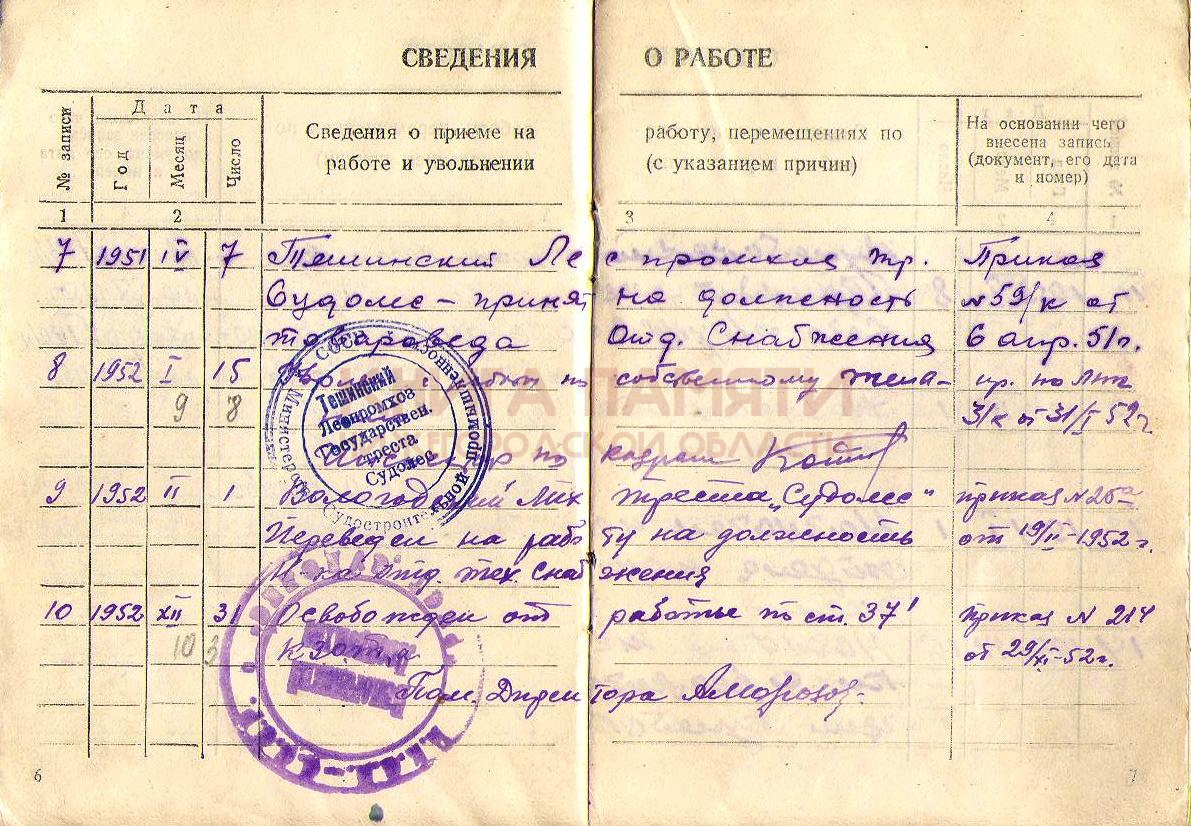 СВЕДЕНИЯ О РАБОТЕ
№ записи
Дата
Год
Месяц
Число
Сведения о приеме на работу, перемещениях по
работе и увольнении (с указанием причин)
На основании чего
внесена запись
(документ, его дата
и номер)
1 2 3 4
7 1951 IV 7 Тешинский Леспромхоз тр. Приказ
Судолес – принят на должность №59/к от
товароведа Отд. Снабжения 6 апр. 51г.
8 1952 I 15 работы по собственному жела- пр. по ЛПХ
9 8 3/к от 31/I 52г.
Инспектор по кадрам
9 1952 II 1 Вологодский ЛПХ треста „Судолес" приказ №25а
Переведен на работу на должность от 19/II-1952г.
Н-ка Отд. тех. Снабжения
10 1952 XII 31 Освобожден от работы по ст. 37' приказ N 214
10 3 КЗОТ от 29/XI-52г.
Пом. Директора А Морозов
Тешинский
Леспромхоз
Государствен.
треста
Судолес
КНИГА ПАМЯТИ
НИЖЕГОРОДСКОЙ ОБЛАСТИ
6 7